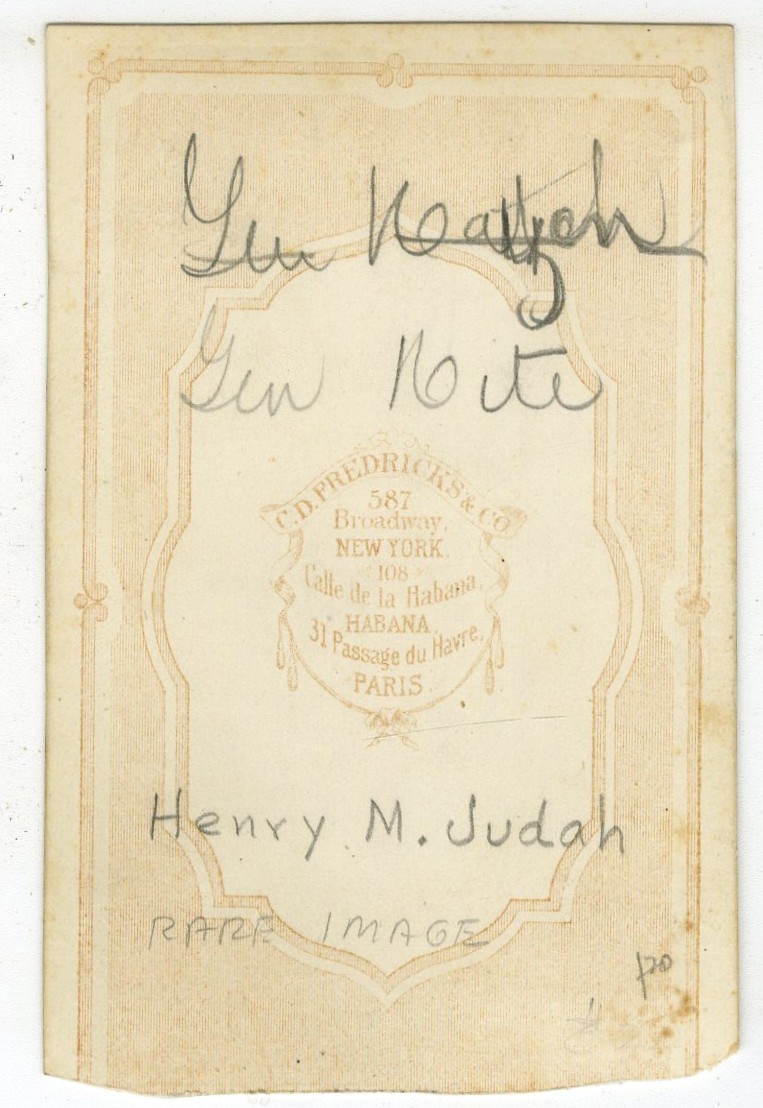 Gen
Gen
C.D. FREDRICKS & CO
587
Broadway,
NEW YORK.
108
Calle de la Habana,
HABANA.
31 Passage du Havre,
PARIS
Henry M. Judah
RARE IMAGE